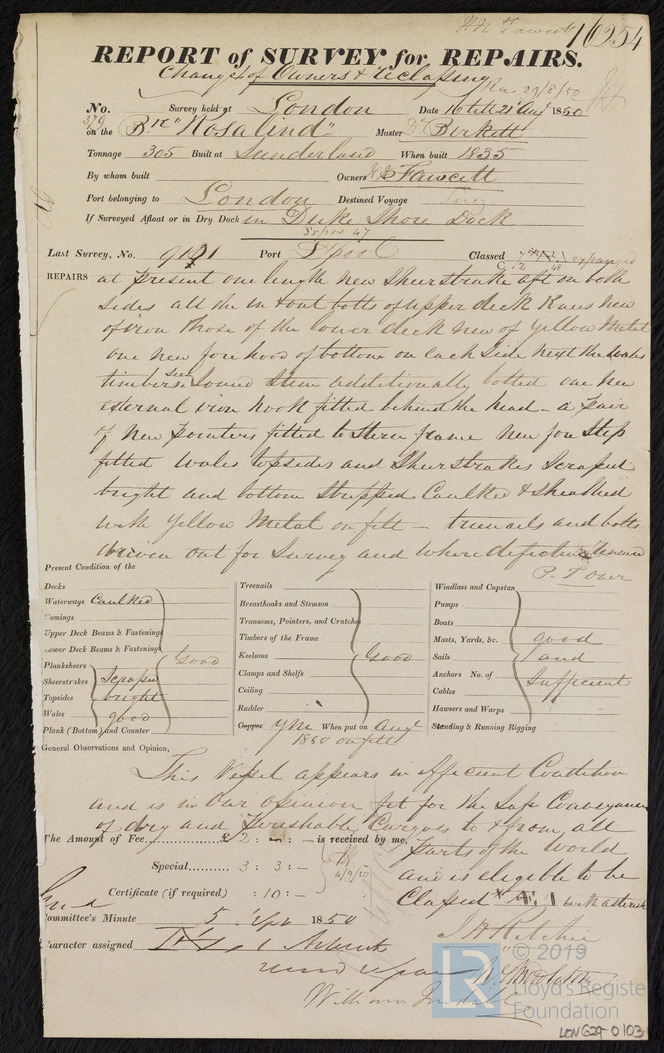 16254
REPORT of SURVEY for REPAIRS.
Change of Owners & reclassing
Rec 29/8/50
No. 379 Survey held at London Date 16 till 21 Aug 1850
on the Bk "Rosalind" Master Dl Birkett
Tonnage 305 Built at Sunderland When built 1835
By whom built Owners Fawcett
Port belonging to London Destined Voyage
If Surveyed Afloat or in Dry Dock in Duke Shore Dock
Last Survey, No. Port L'pool Classed expunged
REPAIRS at present one length new Sheerstrake aft on both
sides all the in & out bolts of upper deck Knees new
of iron those of the lower deck new of Yellow Metal
one new fore hood of bottom on each side next the wales
timbers seen Sound Stem additionally bolted one new
external iron hook fitted behind the head - a pair
of new pointers fitted to Stern frame new fore Step
fitted Wales topsides and Sheerstrakes Scraped
bright and bottom Stripped Caulked & Sheathed
with Yellow Metal on felt - trenails and bolts
driven out for Survey and where defective renewed
P. T over
Present Condition of the
Decks
Waterways Caulked
Comings
Upper Deck Beams & Fastenings
Lower Deck Beams & Fastenings
Planksheers
Sheerstrakes Scraped
Topsides bright
Wales good
Plank (Bottom) and Counter
Good
Treenails
Breasthooks and Stemson
Transoms, Pointers, and Crutches
Timbers of the Frame
Keelsons Good
Clamps and Shelfs
Ceiling
Rudder
Copper YM When put on Augt
1850 on felt
Windlass and Capstan
Pumps
Boats
Masts, Yards, &c. good
Sails and
Anchors No. of Sufficient
Cables
Hawsers and Warps
Standing & Running Rigging
General Observations and Opinion,
This Vessel appears in efficient Condition
and is in our opinion fit for the Safe Conveyance
of dry and Perishable Cargoes to & from all
parts of the world
and is eligible to be
Classed with asterisk
The Amount of Fee £2 : — : — is received by me,
Special 3 : 3 : —
4/9/50
Certificate (if required) : 10 : —
Committee's Minute 5 1850
Character assigned
J H Ritchie
William
© 2019
Lloyd's Register
Foundation
LR
LON629-0103